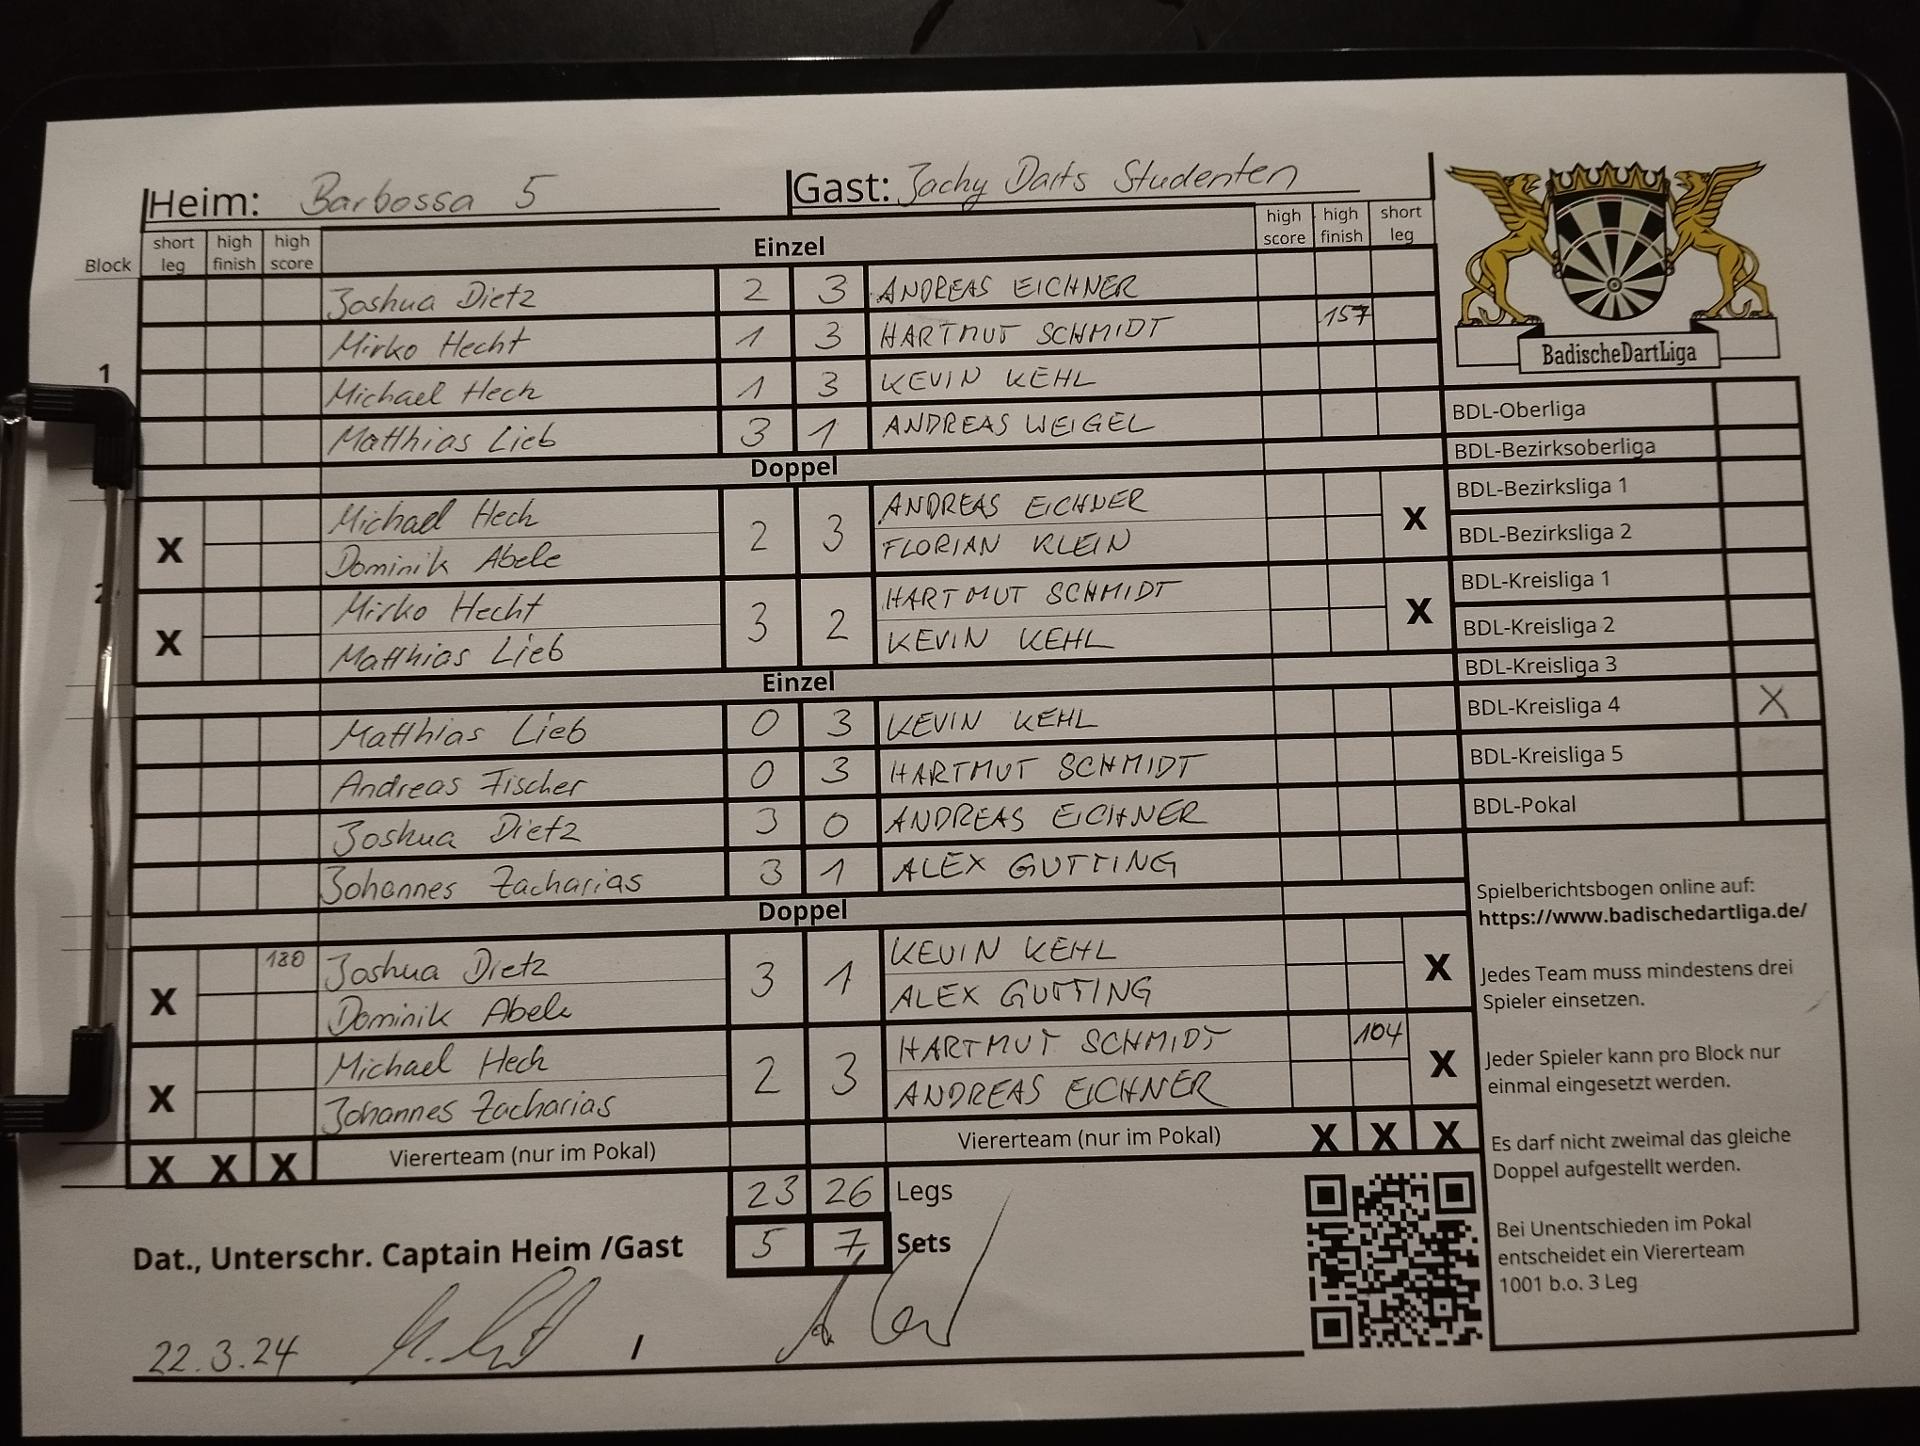 Heim: Barbossa 5 Gast: Jachy Darts Studenten
Block short leg high finish high score Einzel high score high finish short leg
Joshua Dietz 2 3 ANDREAS EICHNER
Mirko Hecht 1 3 HARTMUT SCHMIDT 157
1
Michael Hech 1 3 KEVIN KEHL
Matthias Lieb 3 1 ANDREAS WEIGEL
Doppel
X Michael Hech 2 3 ANDREAS EICHNER X
Dominik Abele FLORIAN KLEIN
2
X Mirko Hecht 3 2 HARTMUT SCHMIDT X
Matthias Lieb KEVIN KEHL
Einzel
Matthias Lieb 0 3 KEVIN KEHL
Andreas Fischer 0 3 HARTMUT SCHMIDT
Joshua Dietz 3 0 ANDREAS EICHNER
Johannes Zacharias 3 1 ALEX GUTTING
Doppel
X 180 Joshua Dietz 3 1 KEVIN KEHL X
Dominik Abele ALEX GUTTING
X Michael Hech 2 3 HARTMUT SCHMIDT 104 X
Johannes Zacharias ANDREAS EICHNER
X X X Viererteam (nur im Pokal) Viererteam (nur im Pokal) X X X
23 26 Legs
5 7 Sets
Dat., Unterschr. Captain Heim /Gast
22.3.24 /
BadischeDartLiga
BDL-Oberliga
BDL-Bezirksoberliga
BDL-Bezirksliga 1
BDL-Bezirksliga 2
BDL-Kreisliga 1
BDL-Kreisliga 2
BDL-Kreisliga 3
BDL-Kreisliga 4 X
BDL-Kreisliga 5
BDL-Pokal
Spielberichtsbogen online auf:
https://www.badischedartliga.de/
Jedes Team muss mindestens drei
Spieler einsetzen.
Jeder Spieler kann pro Block nur
einmal eingesetzt werden.
Es darf nicht zweimal das gleiche
Doppel aufgestellt werden.
Bei Unentschieden im Pokal
entscheidet ein Viererteam
1001 b.o. 3 Leg